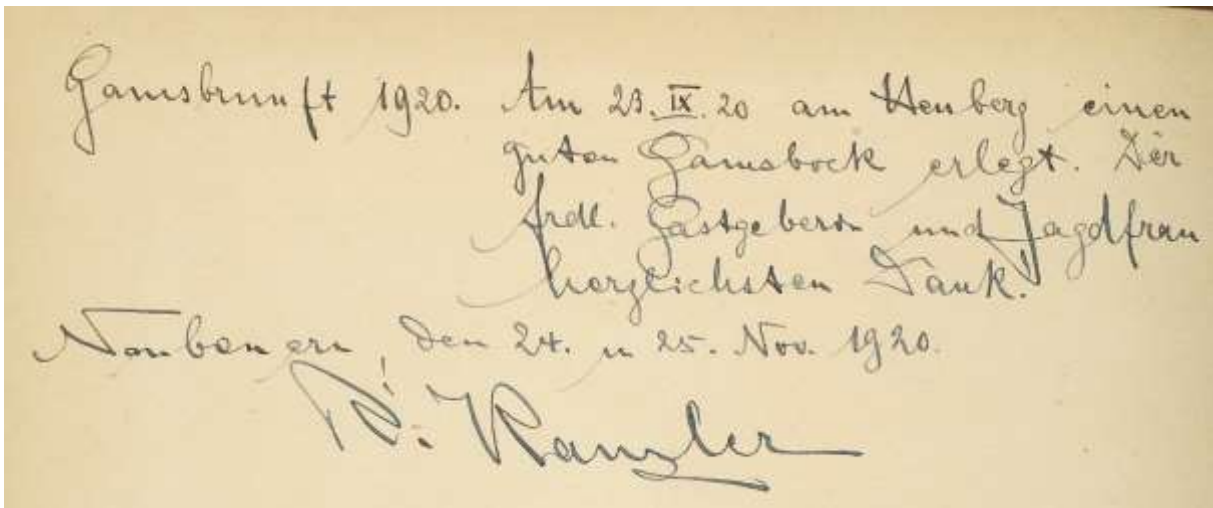 Gamsbrunft 1920. Am 23. IX. 20 am Heuberg einen
guten Gamsbock erlegt. Der
frdl. Gastgeberin und Jagdfrau
herzlichsten Dank!
Neubeuern, den 24. u 25. Nov. 1920.
R. Kanzler